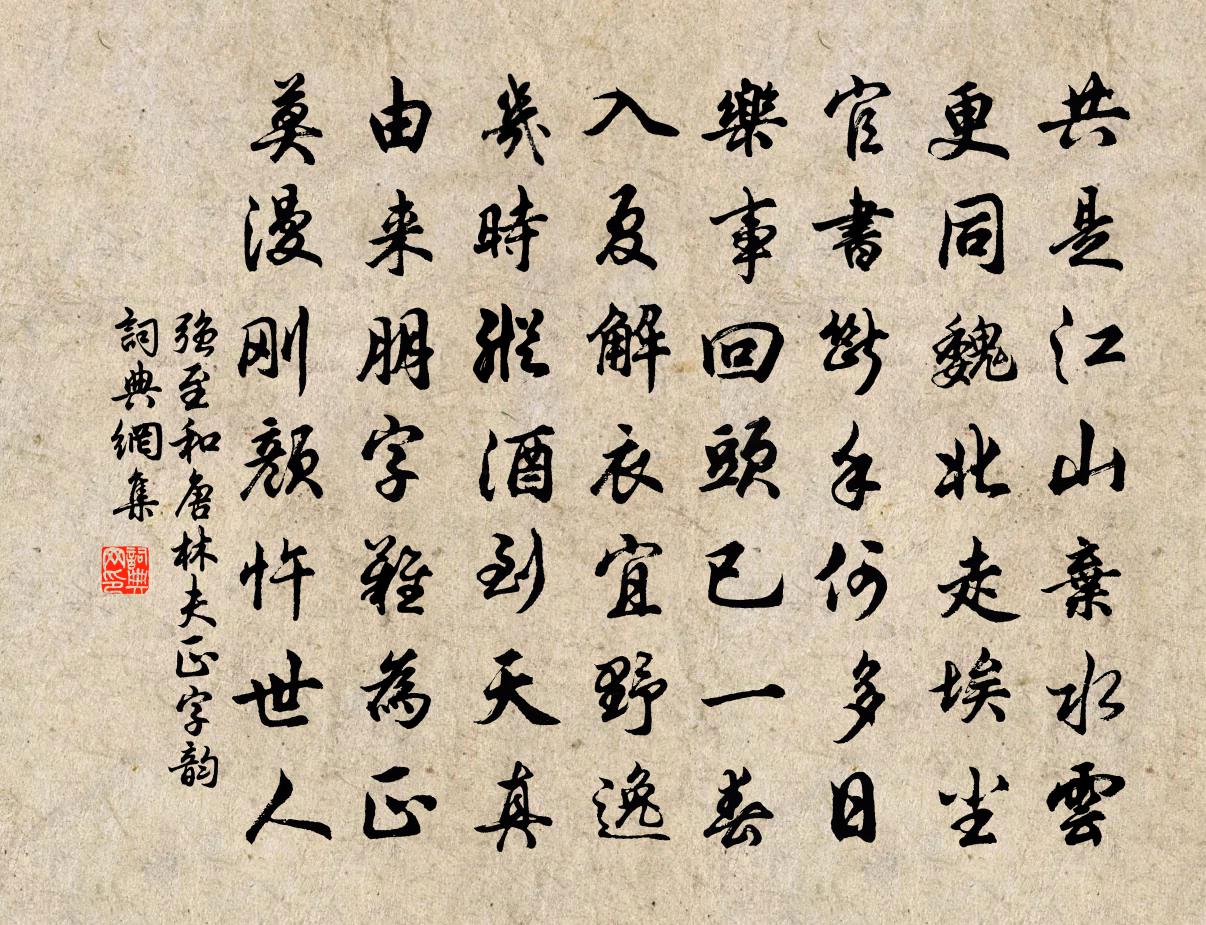 共是江山棄水雲
更同魏北走埃尘
官書斷手何多日
樂事回頭已一春
入夏解衣宜野逸
幾時縱酒到天真
由来朋字難為正
莫漫刚顏忤世人
強至和唐林夫正字韵
詞典網集
詞典网印